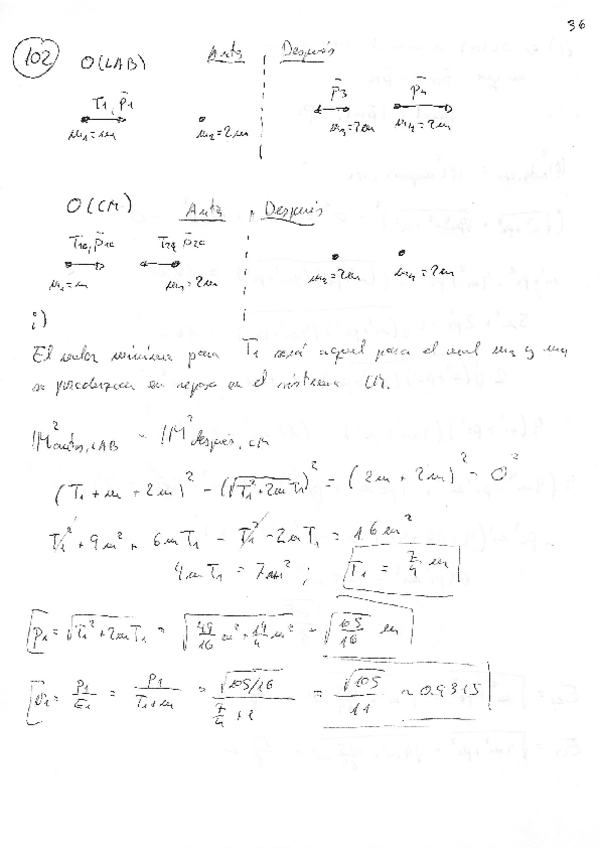 36
102
O(LAB) Antes Después
T₁, p̄₁ p̄₃ p̄₄
m₁=m m₂=2m m₃=2m m₄=2m
O(CM) Antes Después
T₁c, p̄₁c T₂c, p̄₂c
m₁=m m₂=2m m₃=2m m₄=2m
i)
El valor mínimo para T₁ será aquel para el cual m₃ y m₄
se produzcan en reposo en el sistema CM.
|M²antes,LAB = |M²después,CM
(T₁ + m + 2m)² - (√(T₁² + 2mT₁))² = (2m + 2m)² - 0²
T₁² + 9m² + 6mT₁ - T₁² - 2mT₁ = 16m²
4mT₁ = 7m² ; T₁ = 7/4 m
p₁ = √(T₁² + 2mT₁) = √(49/16 m² + 14/4 m²) = √(105/16) m
v̄₁ = p₁/E₁ = p₁/(T₁+m) = √(105/16)/(7/4 + 1) = √105/11 ≈ 0.9315